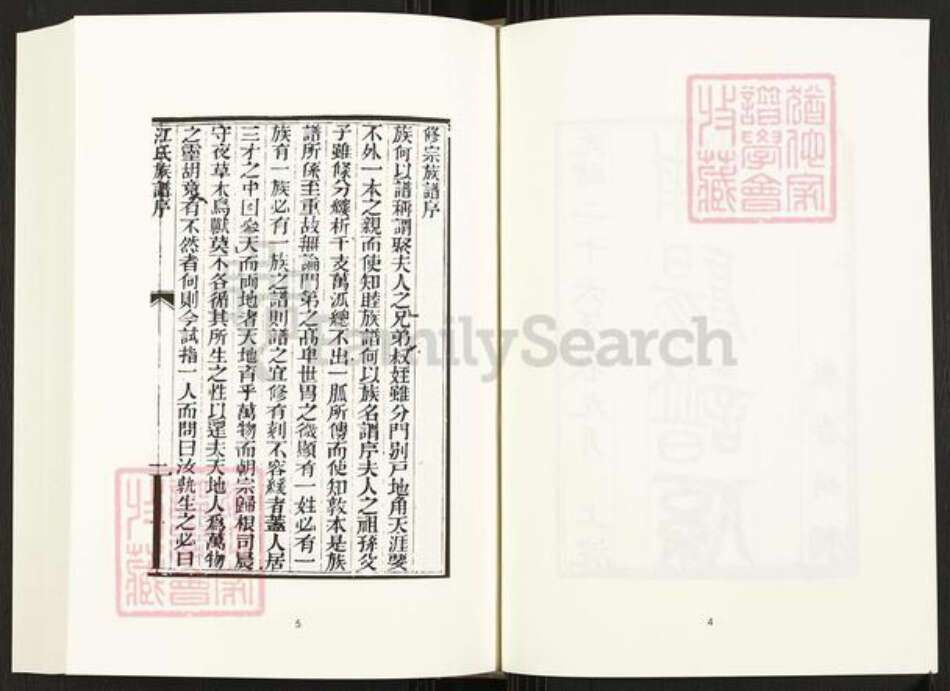 猶他家
譜學會
收藏
4
修宗族譜序
族何以譜稱謂聚夫人之兄弟叔姪雖分門別戶地角天涯要
不外一本之親而使知睦族譜何以族名謂序夫人之祖孫父
子雖條分縷析千支萬派總不出一脈所傳而使知敦本是族
譜所係至重故無論門第之高卑世胄之微顯有一姓必有一
族有一族必有一族之譜則譜之宜修有刻不容緩者蓋人居
三才之中曰參天而兩地者天地育乎萬物而朝宗歸根司晨
守夜草木鳥獸莫不各循其所生之性以還夫天地人為萬物
之靈胡竟有不然者何則今試指一人而問曰汝孰生之必曰
江氏族譜序
一
猶他家
譜學會
收藏
5
FamilySearch